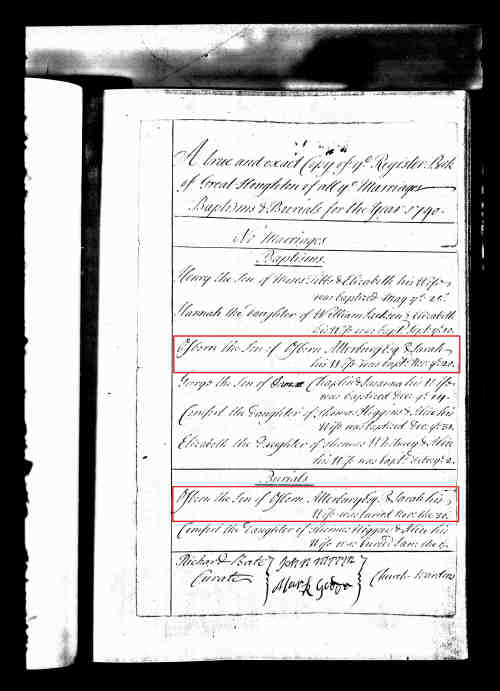 A true and exact Copy of ye Register Book
of Great Houghton of all ye Marriages
Baptisms & Burials for the Year 1740.
No Marriages
Baptisms.
Henry the Son of Moses Tibbs & Elizabeth his Wife
was baptized May ye 25th
Hannah the Daughter of William Jackson & Elizabeth
his Wife was bapt. Sept. ye
Osbern the Son of Osbern Atterbury Esq. & Sarah
his Wife was bapt. Nov. ye 20.
George the Son of Chaplin & Susanna his Wife
was baptized Dec. ye 14.
Comfort the Daughter of Thomas Higgins & Alice his
Wife was baptized Dec. ye
Elizabeth the Daughter of Thomas & Alice
his Wife was bapt.
Burials
Osbern the Son of Osbern Atterbury Esq. & Sarah his
Wife was buried Nov. the
Comfort the Daughter of Thomas Higgins & Alice his
Wife was buried Jan. the
Richard Bate
Curate
John
Mark
Church-wardens